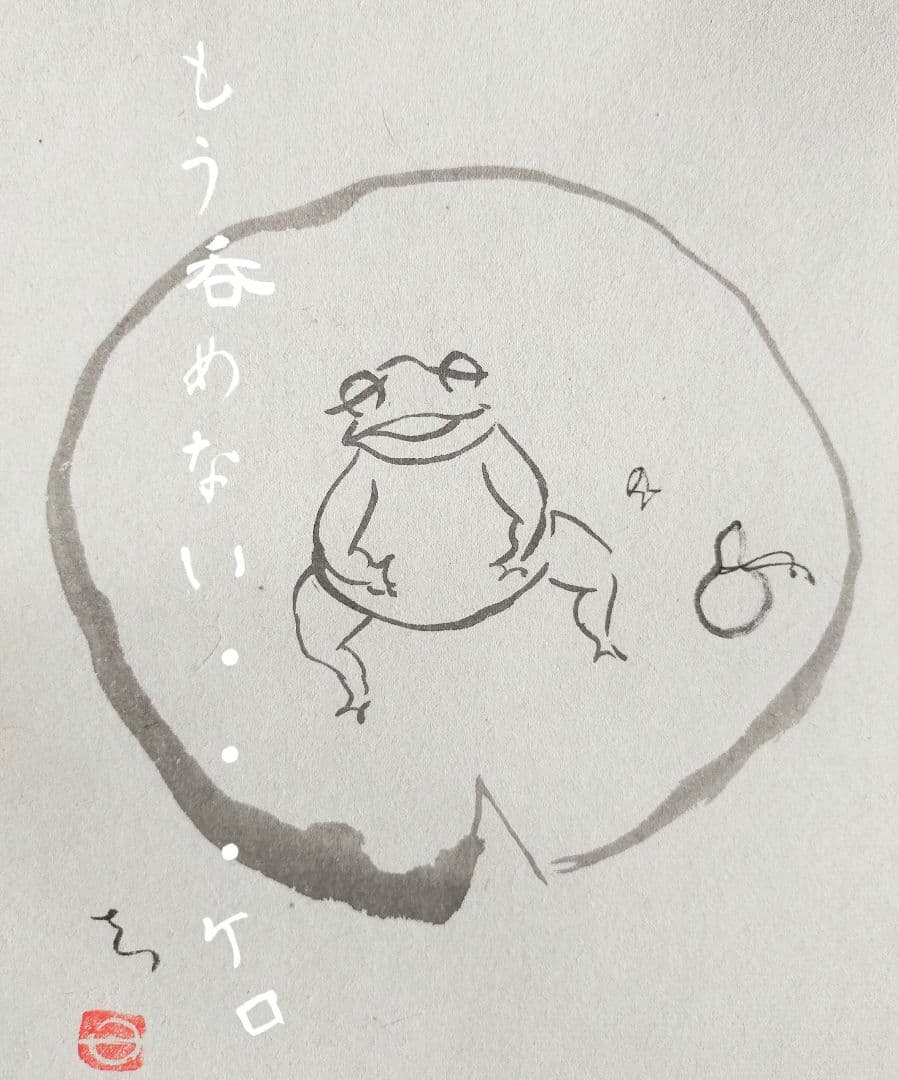 もう呑めない・・・ケロ